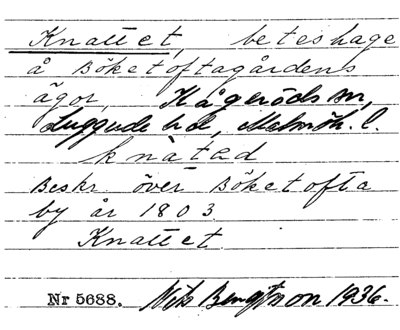 Knattet, beteshage
å Böketoftagårdens
ägor, Kågeröds sn,
Luggude hd, Malmöh. l.
knàtad
Beskr. över Böketofta
by år 1803
Knattet.
Nr 5688. Nils Bengtsson 1936.